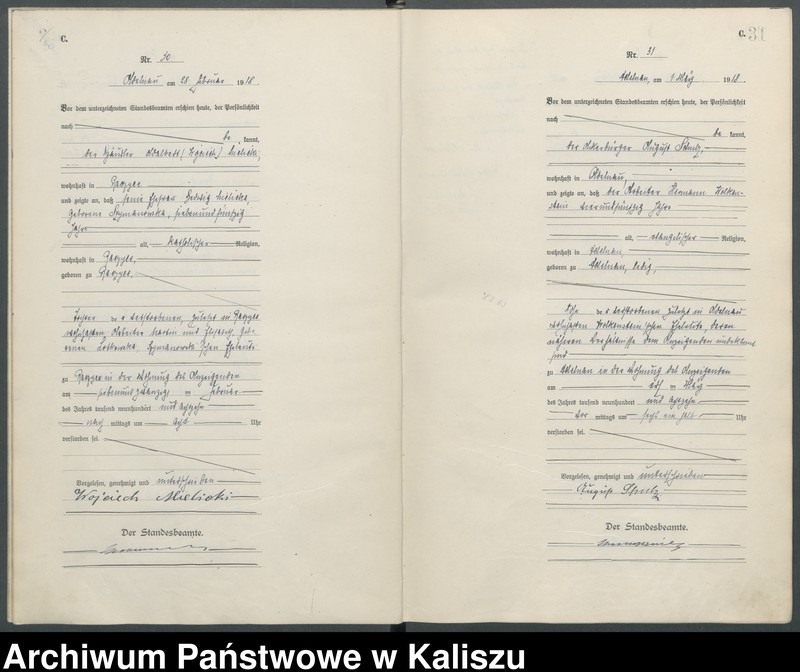 C.
Nr. 30
Adelnau am 28 Februar 1918
Vor dem unterzeichneten Standesbeamten erschien heute, der Persönlichkeit
nach
be kannt,
der Häusler Adalbert (Wojciech) Mielicki,
wohnhaft in
und zeigte an, daß seine Ehefrau Hedwig Mielicka,
geborene Szymanowska, siebenundfünfzig
Jahre
alt, katholischer Religion,
wohnhaft in
geboren zu
Tochter de r verstorbenen, zuletzt in
wohnhaften Arbeiter Martin und Elisabeth, geborenen
Szymanowski'schen Eheleute
zu in der Wohnung des Anzeigenden
am siebenundzwanzigsten Februar
des Jahres tausend neunhundert und achtzehn
nach mittags um acht Uhr
verstorben sei.
Vorgelesen, genehmigt und unterschrieben
Wojciech Mielicki
Der Standesbeamte.
C. 31
Nr. 31
Adelnau, am 9 März 1918
Vor dem unterzeichneten Standesbeamten erschien heute, der Persönlichkeit
nach
be kannt,
der Ackerbürger August
wohnhaft in Adelnau,
und zeigte an, daß der Arbeiter Hermann Wolken-
stein Jahre
alt, evangelischer Religion,
wohnhaft in Adelnau,
geboren zu Adelnau, ledig,
Sohn de r verstorbenen zuletzt in Adelnau
wohnhaften Wolkenstein'schen Eheleute, deren
näheren Verhältnisse dem Anzeigenden unbekannt
sind
zu Adelnau in der Wohnung des Anzeigenden
am März
des Jahres tausend neunhundert und achtzehn
vor mittags um sechs ein halb Uhr
verstorben sei.
Vorgelesen, genehmigt und unterschrieben
August
Der Standesbeamte.
Archiwum Państwowe w Kaliszu